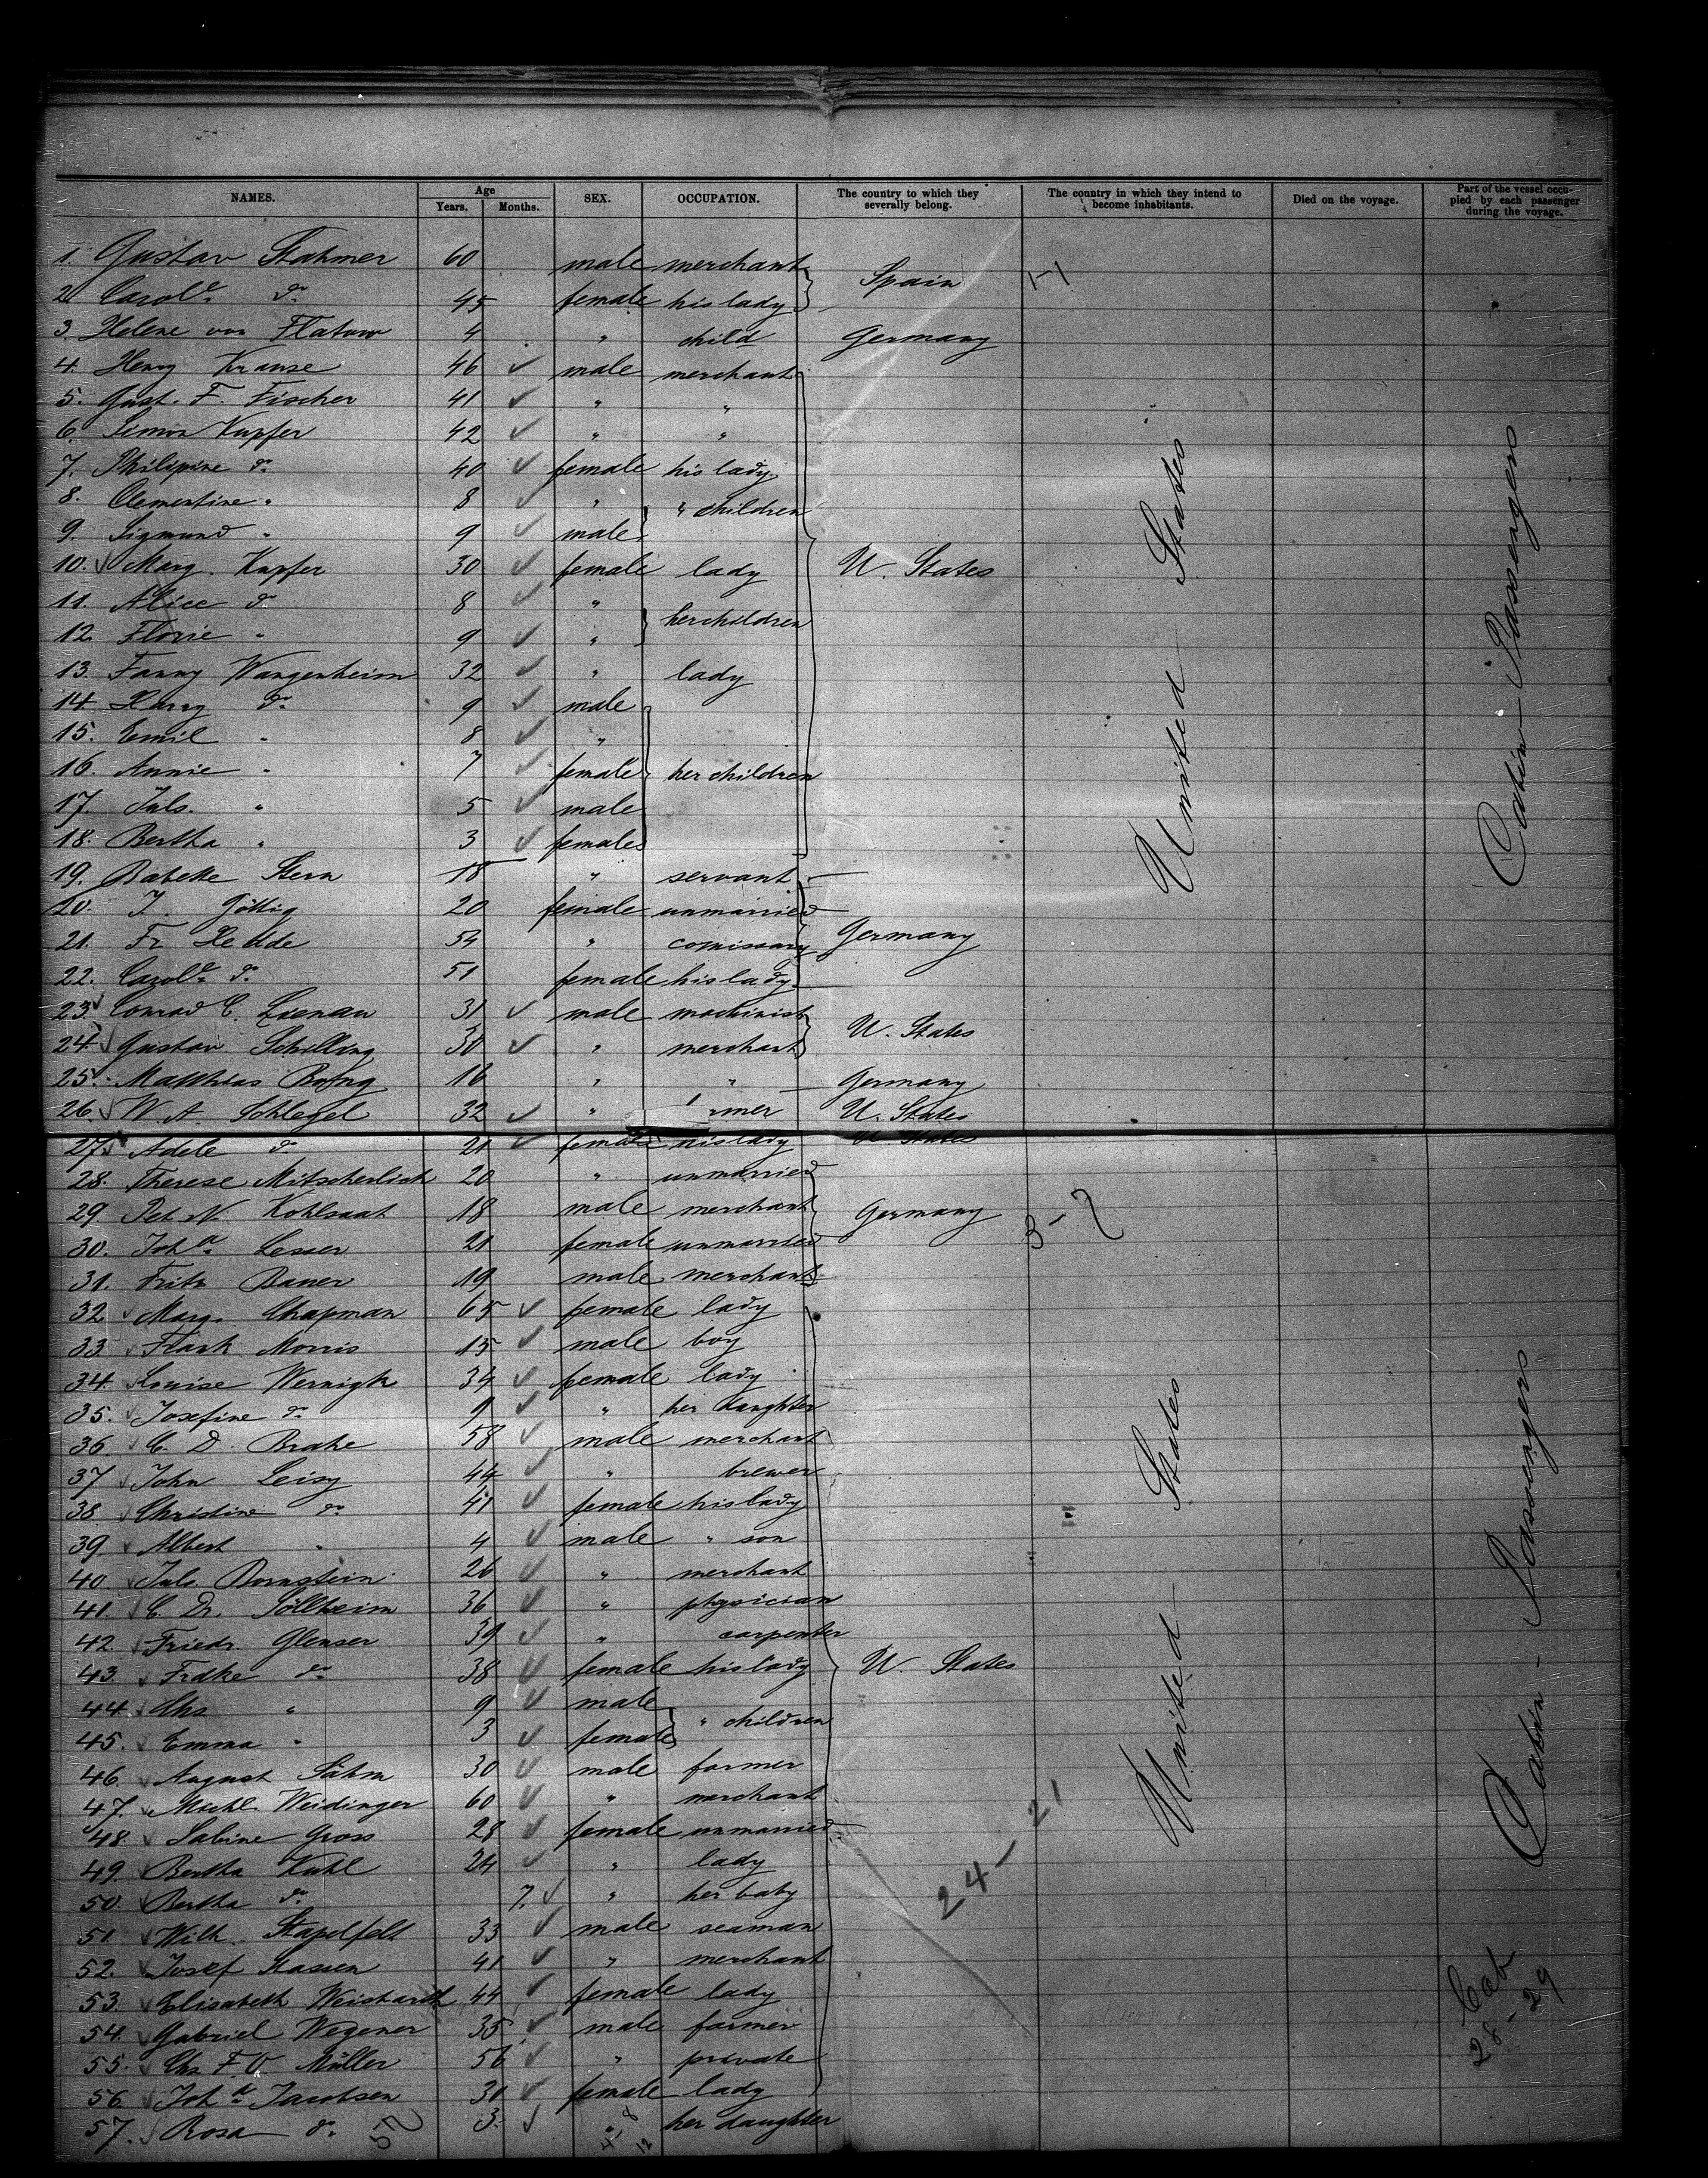 NAMES. Age Years. Months. SEX. OCCUPATION. The country to which they severally belong. The country in which they intend to become inhabitants. Died on the voyage. Part of the vessel occupied by each passenger during the voyage.
1. Gustav Stahmer 60 male merchant Spain 1-1
2. Carol^e. do. 45 female his lady
3. Helene von Flatow 4 " child Germany
4. Henry Krause 46 ✓ male merchant
5. Gust. F. Fischer 41 ✓ " "
6. Simon Kupfer 42 ✓ " "
7. Philipine do. 40 ✓ female his lady
8. Clementine " 8 ✓ " " children
9. Sigmund " 9 ✓ male
10. ✓ Marg. Kupfer 30 ✓ female lady U. States
11. Alice do. 8 ✓ " her children
12. Florie " 9 ✓ "
13. Fanny Wangenheim 32 ✓ " lady
14. Harry do. 9 ✓ male
15. Emil " 8 ✓ "
16. Annie " 7 ✓ female her children
17. Juls. " 5 ✓ male
18. Bertha " 3 ✓ female
19. Babette Stern 18 " servant
20. J. Göttig 20 female unmarried
21. Fr. Hedde 54 " comissary Germany
22. Carol^e. do. 51 female his lady
23. ✓ Conrad C. Lienau 31 ✓ male machinist U. States
24. ✓ Gustav Schilling 30 ✓ " merchant
25. Matthias 16 " " Germany
26. ✓ W. A. Schlegel 32 ✓ " rmer U. States
27. ✓ Adele do. 21 ✓ female his lady U. States
28. Therese Mitscherlich 20 " unmarried
29. Pet. N. Kohlsaat 18 male merchant Germany 3-2
30. Joh^a. Lesser 21 female unmarried
31. Fritz Bauer 19 male merchant
32. ✓ Marg. Chapman 65 ✓ female lady
33. ✓ Frank Morris 15 ✓ male boy
34. ✓ Louise Wernigk 34 ✓ female lady
35. ✓ Josefine do. 9 ✓ " her daughter
36. ✓ C. D. Brake 58 ✓ male merchant
37. ✓ John Leisy 44 ✓ " brewer
38. ✓ Christine do. 41 ✓ female his lady
39. ✓ Albert " 4 ✓ male " son
40. ✓ Juls. Bornstein 26 ✓ " merchant
41. ✓ C. Dr. Söllheim 36 ✓ " physician
42. ✓ Friedr. Glenser 39 ✓ " carpenter
43. ✓ Frdke do. 38 ✓ female his lady U. States
44. ✓ Chs. " 9 ✓ male " children
45. ✓ Emma " 3 ✓ female
46. ✓ August Sahm 30 ✓ male farmer
47. ✓ Michl. Weidinger 60 ✓ " merchant
48. ✓ Sabine Gross 28 ✓ female unmarried
49. ✓ Bertha Kahl 24 ✓ " lady
50. ✓ Bertha do. 7. ✓ " her baby
51. ✓ Wilh. Stapelfelt 33 ✓ male seaman
52. ✓ Josef Stassen 41 ✓ " merchant
53. ✓ Elisabeth Weishardt 44 ✓ female lady
54. ✓ Gabriel Wegener 35 ✓ male farmer
55. ✓ Chs. F. O. Müller 56 ✓ " private
56. ✓ Joh^a. Jacobsen 31 ✓ female lady
57. ✓ Rosa do. 3. ✓ " her daughter
57
4-8
12
24-21
United States
United States
Cabin-Passengers
Cabin-Passengers
Cab
28-29